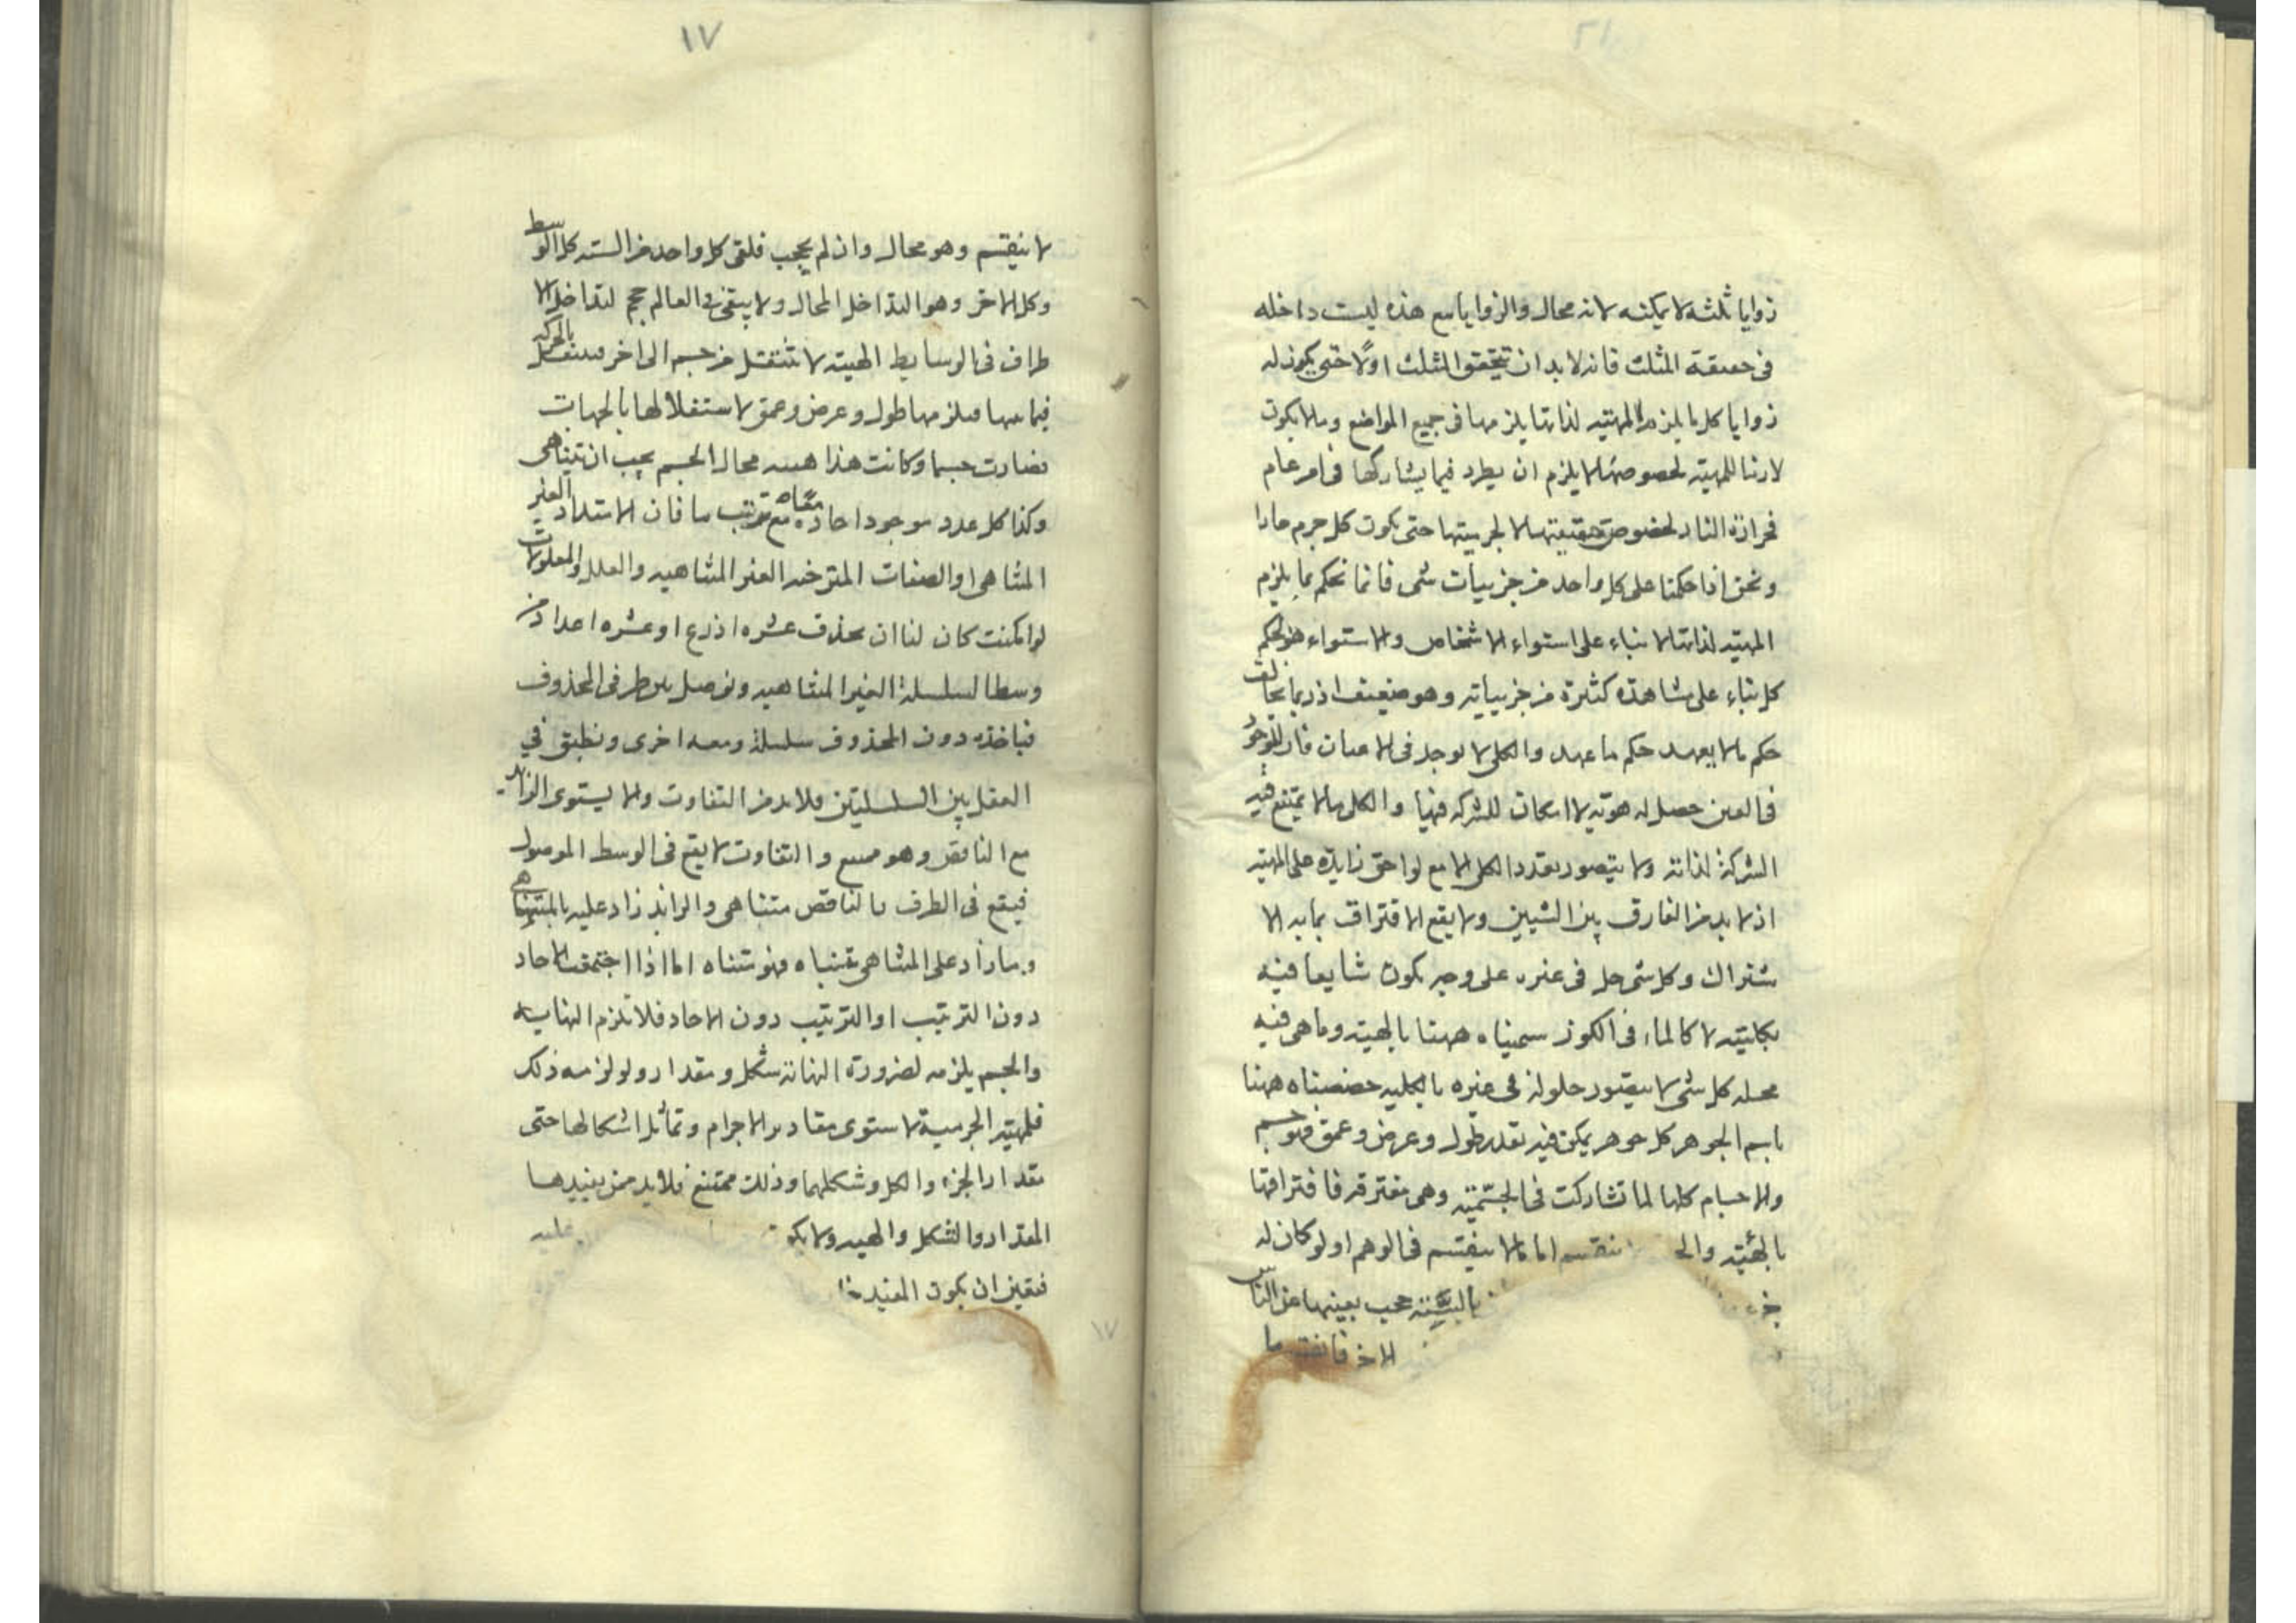 زوايا ثلثه لا يمكنه لانه محال والزوايا مع هذه ليست داخله
فى حقيقة المثلث فانه لابد ان تتحقق المثلث اولًا حتى يكون له
زوايا كل ما يلزم المهيّه لذاتها يلزمها فى جميع المواضع وما لا يكون
لازما للمهيّه لخصوصها لا يلزم ان يطرد فيما يشاركها فى امر عام
فحرارة النار لخصوص حقيقتها لا لجرميتها حتى يكون كل جرم حارا
ونحن اذا حكمنا على كل واحد من جزييات شى فانما نحكم بما يلزم
المهيّه لذاتها لا بناء على استواء الاشخاص والاستواء هو لحكم
كل بناء على مشاهدة كثيرة من جزيياته وهو ضعيف اذ ربما يخالف
حكم ما لا يعهد حكم ما عهد والكلى لا يوجد فى الاعيان فان للموجود
فى العين حصل له هويّه لا امكان للشركه فيها والكلى ما لا يمتنع فيه
الشركة لذاته ولا يتصور تعدد الكلى الا مع لواحق زايدة على المهيّه
اذ لا بد من الفارق بين الشيين ولا يقع الافتراق بما به الا
شتراك وكل شى حل فى غيره على وجه يكون شايعا فيه
بكليته لا كالماء فى الكوز سميناه ههنا بالهيئه وما هى فيه
محله كل شى لا يتصور حلوله فى غيره بالكليه خصصناه ههنا
باسم الجوهر كل جوهر يمكن فيه تقدير طول وعرض وعمق فهو جسم
والاجسام كلها لما تشاركت فى الجسميّه وهى مفترقه فافتراقها
بالهيئه والجـ ينقسم اما ما لا ينقسم فى الوهم او لو كان له
جز بالستّه يجب بعينها من الناس
الاخر فانقسم ما
١٧
لا ينقسم وهو محال وان لم يحجب فلقى كل واحد من السته كل الوسط
وكل الاخر وهو التداخل المحال ولا يبقى فى العالم حجم لتداخل الا
طراف فى الوسايط الهيئه لا تنتقل من جسم الى اخر فينتقل بالحركه
فيما بينها فيلزمها طول وعرض وعمق لاستقلالها بالجهات
فصارت جسما وكانت هذا هيئه محال الجسم يجب ان يتناهى
وكذا كل عدد موجود احاده معًا مع ترتيب ما فان الامتداد الغير
المتناهى او الصفات المترتبه الغير المتناهيه والعلل والمعلولات
لو امكنت كان لنا ان نحذف عشره اذرع او عشره اعداد من
وسط السلسلة الغير المتناهيه ونوصل بين طرفى المحذوف
فياخذه دون المحذوف سلسلة ومعه اخرى ونطبق في
العقل بين السلسلتين فلابد من التفاوت والا يستوى الزايد
مع الناقص وهو ممتنع والتفاوت لا يقع فى الوسط الموصول
فيقع فى الطرف فالناقص متناهى والزايد زاد عليه بالمتناهى
وما زاد على المتناهى بمتناه فهو متناه اما اذا اجتمعت الاحاد
دون الترتيب او الترتيب دون الاحاد فلا تلزم النهايه
والجسم يلزمه لضرورة النهاية شكل ومقدار ولو لزمه ذلك
فلمهيّه الجرميه لاستوى مقادير الاجرام وتماثل اشكالها حتى
مقدار الجزء والكل وشكلهما وذلك ممتنع فلابد من مفيدها
المقدار والشكل والهيئه ولا يكو عليه
فتعين ان يكون المفيد خا
١٧